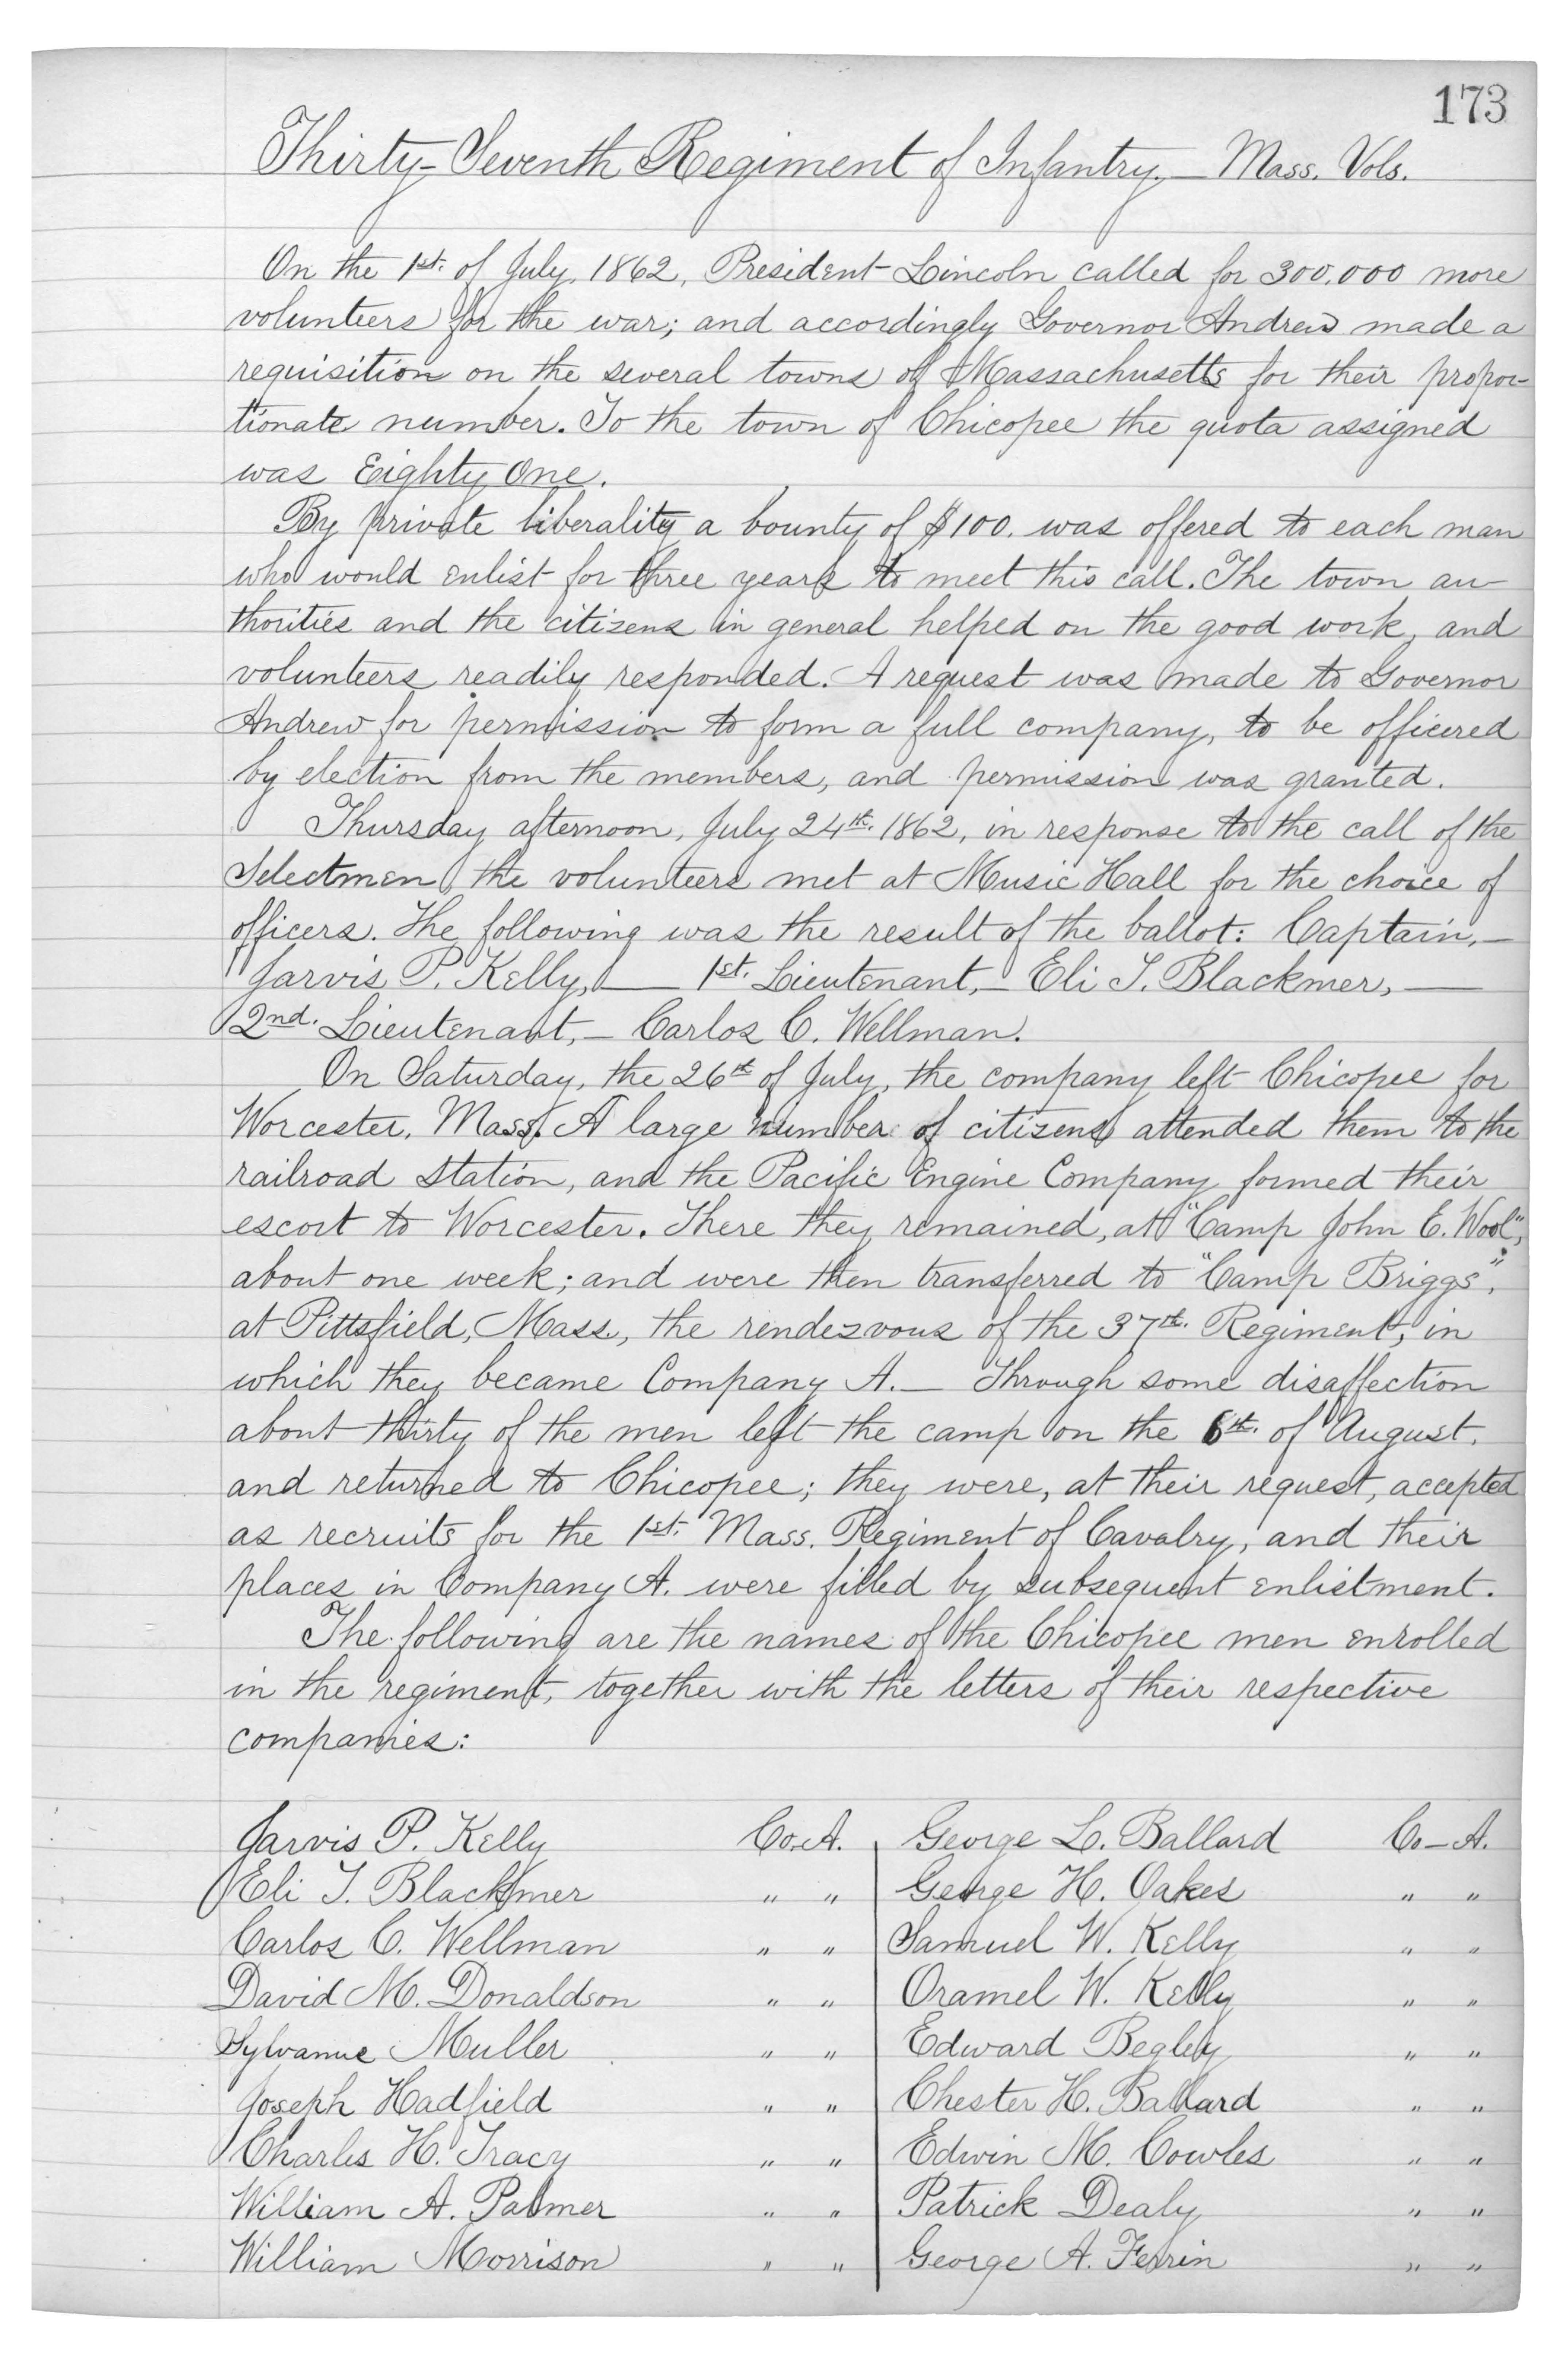 173
Thirty-Seventh Regiment of Infantry,— Mass. Vols.
On the 1st. of July, 1862, President Lincoln called for 300.000 more
volunteers for the war; and accordingly Governor Andrew made a
requisition on the several towns of Massachusetts for their propor-
tionate number. To the town of Chicopee the quota assigned
was Eighty One.
By private liberality a bounty of $100. was offered to each man
who would enlist for three years to meet this call. The town au-
thorities and the citizens in general helped on the good work, and
volunteers readily responded. A request was made to Governor
Andrew for permission to form a full company, to be officered
by election from the members, and permission was granted.
Thursday afternoon, July 24th. 1862, in response to the call of the
Selectmen, the volunteers met at Music Hall for the choice of
officers. The following was the result of the ballot: Captain,—
Jarvis P. Kelly,— 1st. Lieutenant,— Eli T. Blackmer,—
2nd. Lieutenant,— Carlos C. Wellman.
On Saturday, the 26th of July, the company left Chicopee for
Worcester, Mass. A large number of citizens attended them to the
railroad station, and the Pacific Engine Company formed their
escort to Worcester. There they remained, at "Camp John E. Wool",
about one week; and were then transferred to "Camp Briggs",
at Pittsfield, Mass., the rendezvous of the 37th. Regiment, in
which they became Company A.— Through some disaffection
about thirty of the men left the camp on the 6th. of August,
and returned to Chicopee; they were, at their request, accepted
as recruits for the 1st. Mass. Regiment of Cavalry, and their
places in Company A. were filled by subsequent enlistment.
The following are the names of the Chicopee men enrolled
in the regiment, together with the letters of their respective
companies:
Jarvis P. Kelly Co. A. George L. Ballard Co— A.
Eli T. Blackmer " " George H. Oakes " "
Carlos C. Wellman " " Samuel W. Kelly " "
David M. Donaldson " " Oramel W. Kelly " "
Sylvanus Muller " " Edward Begley " "
Joseph Hadfield " " Chester H. Ballard " "
Charles H. Tracy " " Edwin M. Cowles " "
William A. Palmer " " Patrick Dealy " "
William Morrison " " George A. Ferrin " "